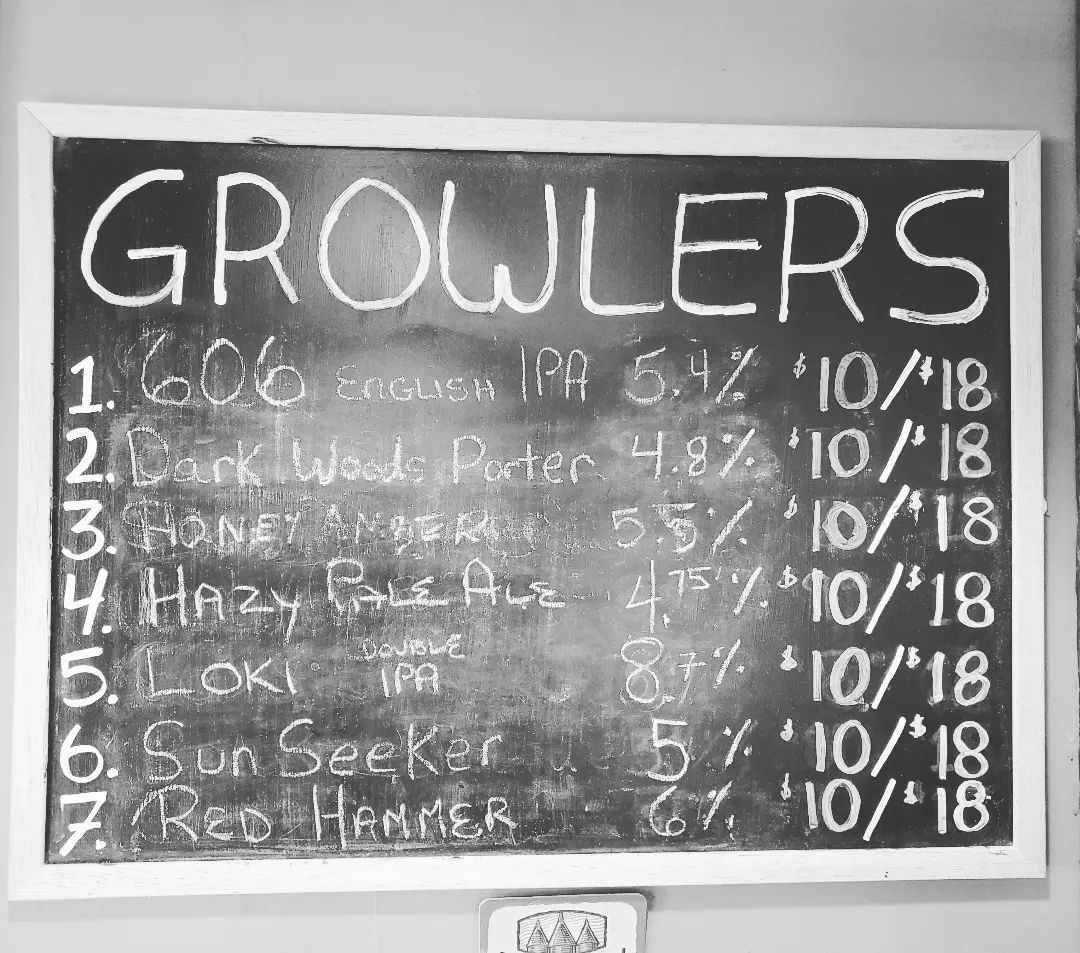 GROWLERS
1. 606 ENGLISH IPA 5.4% $10/$18
2. Dark Woods Porter 4.8% $10/$18
3. HONEY AMBER 5.5% $10/$18
4. HAZY PALE ALE 4.75% $10/$18
5. LOKI DOUBLE IPA 8.7% $10/$18
6. Sun Seeker 5% $10/$18
7. RED HAMMER 6% $10/$18